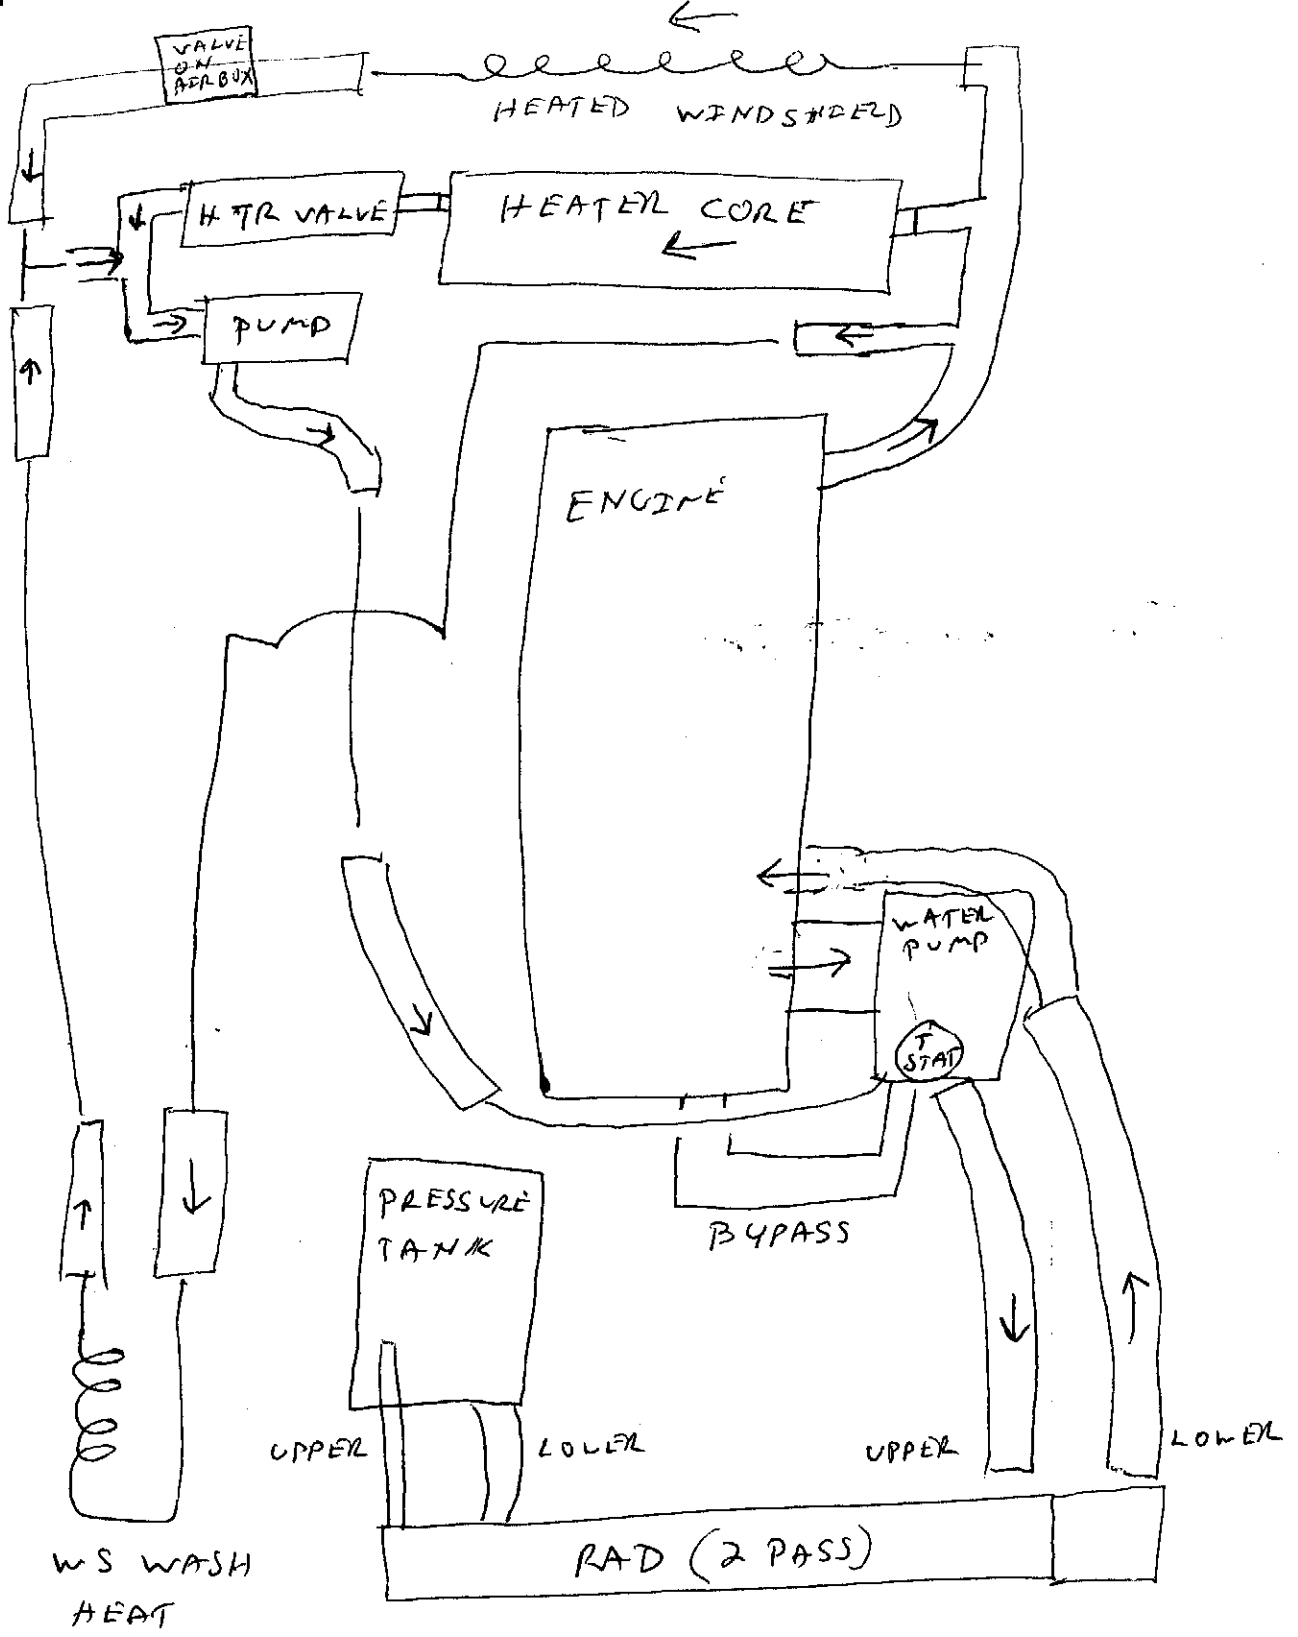 VALVE
ON
AIRBOX
HEATED WINDSHIELD
HTR VALVE
HEATER CORE
PUMP
ENGINE
WATER
PUMP
T
STAT
PRESSURE
TANK
BYPASS
UPPER
LOWER
UPPER
LOWER
RAD (2 PASS)
WS WASH
HEAT